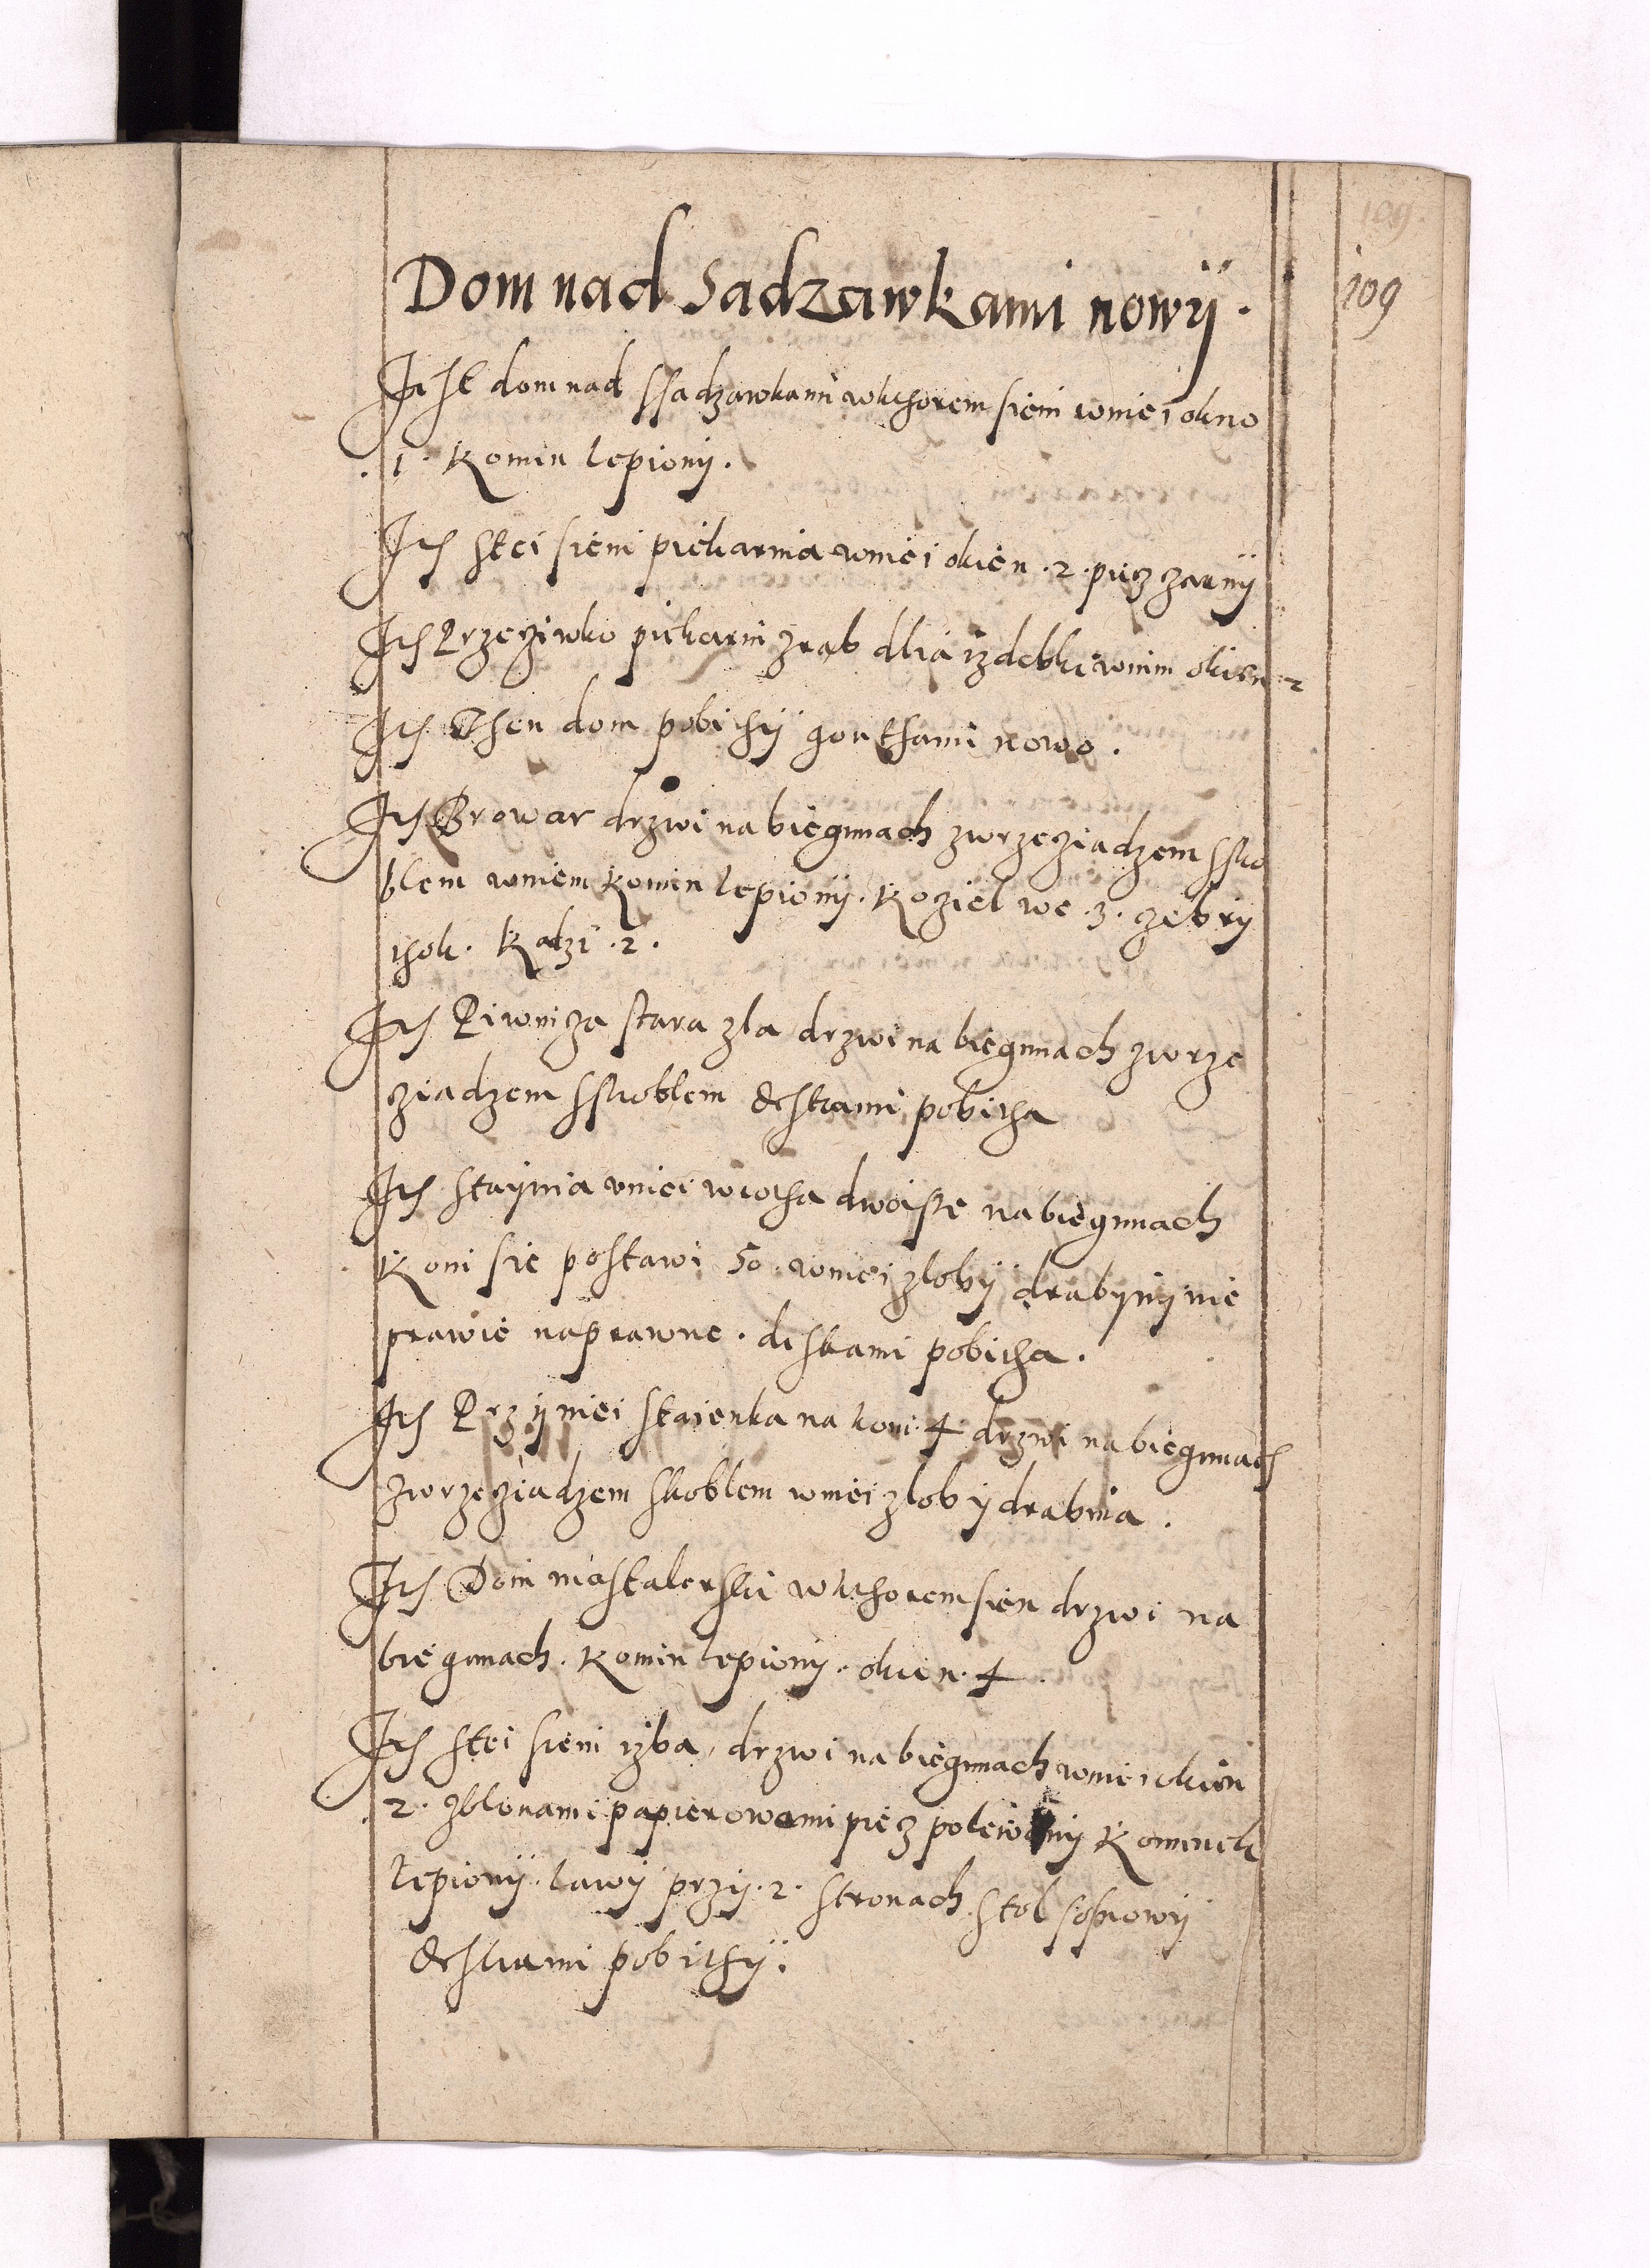 109.
109
Dom nad Sadzawkami nowÿ.
Jest dom nad ssadzawkami wkthorem sieni wniei okno
.1. Komin lepiony.
Ith stei sieni piekarnia wniei okien .2. piecz czarnÿ
Ith Przeciwko piekarni zrab dlia izdebki wnim okien 2
Ith Then dom pobithÿ gonthami nowo.
Ith Browar drzwi na biegunach zwrzecziadzem ssko
blem wniem komin lepionÿ. Koziel we .3. czebry
thok. Kadzi .2.
Ith Piwnicza stara zla drzwi na biegunach zwrze
cziadzem sskoblem deskami pobitha
Ith staynia wniei wrotha dwoiste na biegunach
Koni sie postawi 50. wniei zlobÿ drabyny nie
prawie naprawne. deskami pobitha.
Ith Przÿ niei staienka na koni 4 drzwi na biegunach
zwrzecziadzem skoblem wniei zlob ÿ drabina.
Ith Dom mastalerski wkthorem sien drzwi na
biegunach. Komin lepiony. okien. 4.
Ith stei sieni izba, drzwi na biegunach wniei okien
.2. zblonami papierowami piecz polewany Kominek
lepionÿ. lawÿ przÿ .2. stronach stol sosnowÿ
deskami pobithÿ.